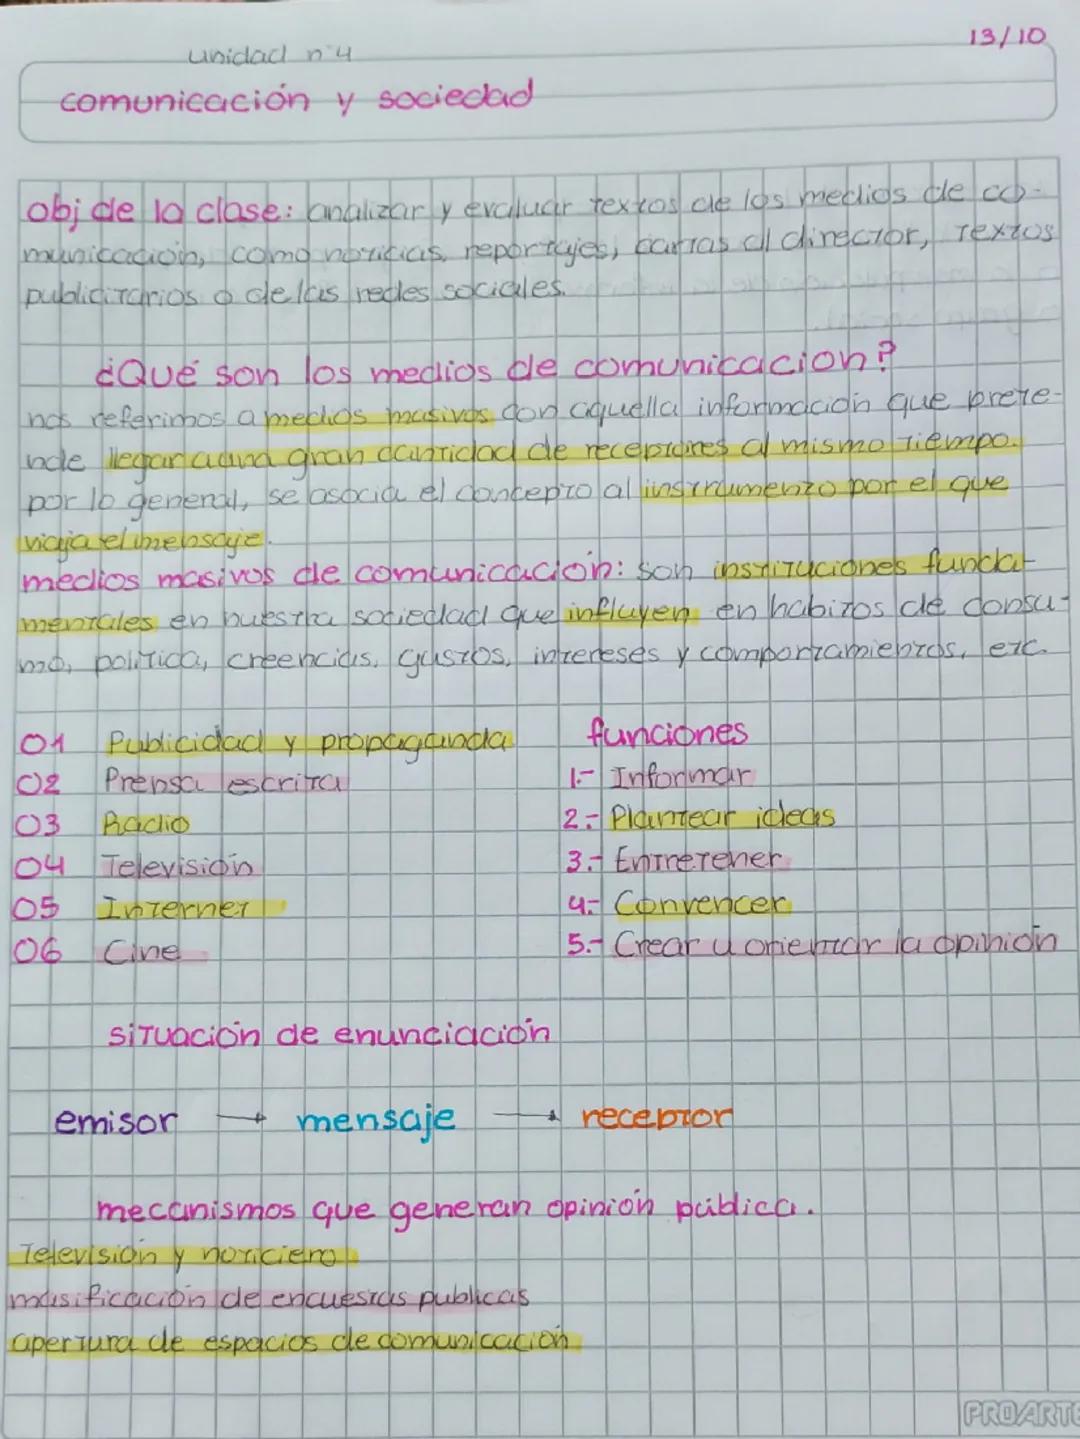 13/10
unidad n°4
comunicación y sociedad
obj de la clase: analizar y evaluar textos de los medios de co-
municación, como noticias, reportajes, cartas al director, textos
publicitarios o de las redes sociales.
¿Qué son los medios de comunicacion?
nos referimos a medios masivos con aquella información que prete-
nde llegar a una gran cantidad de receptores al mismo tiempo.
por lo general, se asocia el concepto al instrumento por el que
viaja el mensaje.
medios masivos de comunicación: son instituciones funda-
mentales en nuestra sociedad que influyen en habitos de consu-
mo, política, creencias, gustos, intereses y comportamientos, etc.
01 Publicidad y propaganda
02 Prensa escrita
03 Radio
04 Televisión
05 Internet
06 Cine
funciones
1.- Informar
2.- Plantear ideas
3.- Entretener
4.- Convencer
5.- Crear u orientar la opinión
situación de enunciación
emisor → mensaje → receptor
mecanismos que generan opinión pública.
Televisión y noticiero
masificación de encuestas publicas
apertura de espacios de comunicación
PROARTE